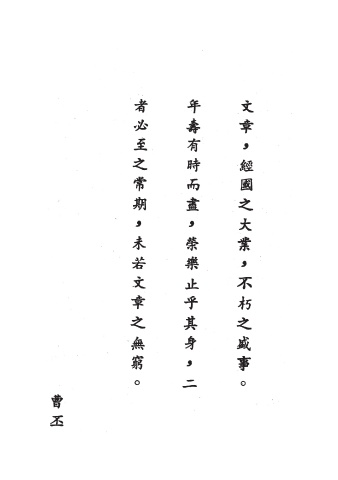 文章，經國之大業，不朽之盛事。
年壽有時而盡，榮樂止乎其身，二
者必至之常期，未若文章之無窮。
曹丕